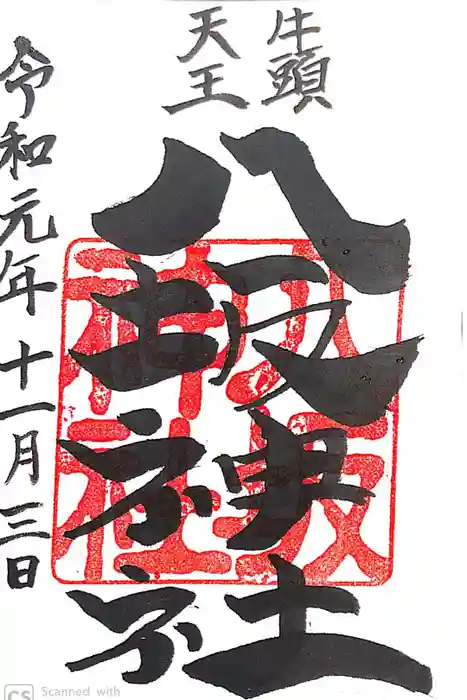 牛頭
天王
八坂神社
八坂
神社
令和元年十一月三日
CS Scanned with